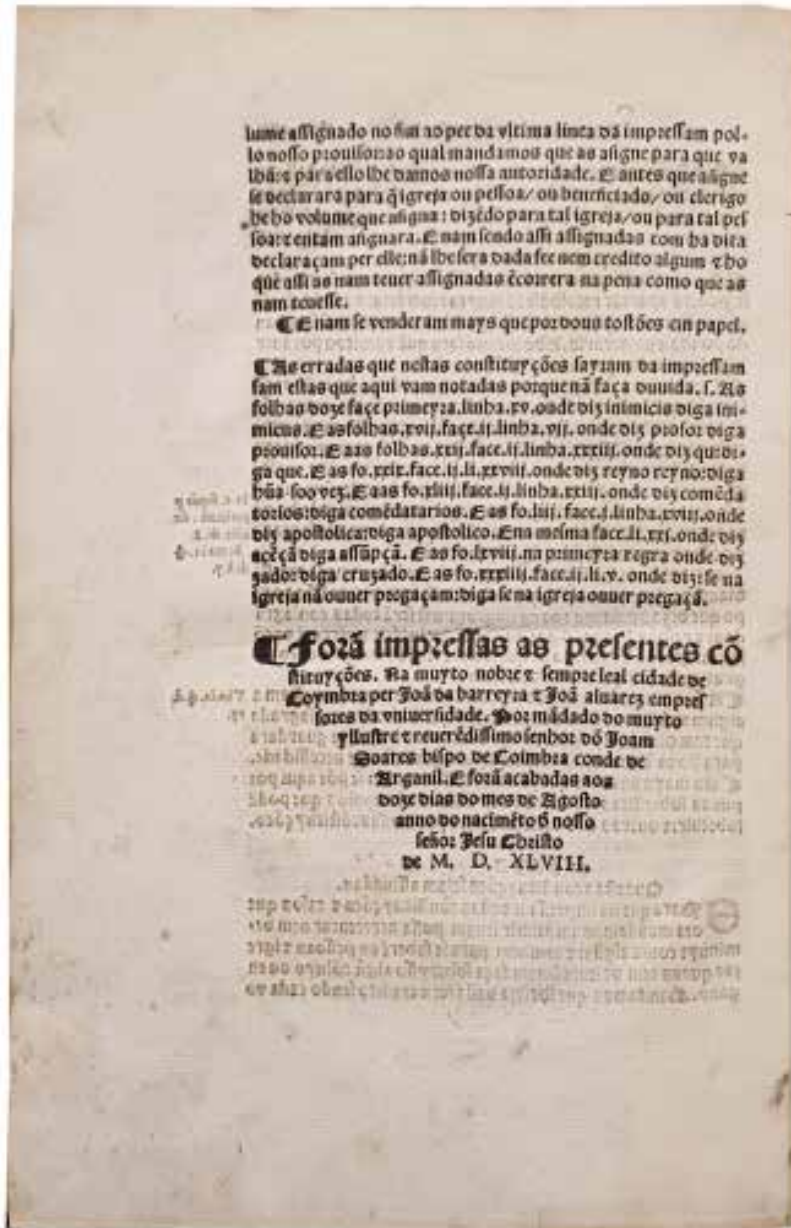 lume assignado no fim ao pee da vltima linea da impressam pol-
lo nosso prouisor: ao qual mandamos que as asigne para que va
lhã: τ para ello lhe damos nossa autoridade. E antes que asigne
se declarara para q̃ igreja ou pessoa/ ou beneficiado/ ou clerigo
he ho volume que asigna: dizẽdo para tal igreja/ ou para tal pes
soa: τ entam asignara. E nam sendo assi assignadas com ha dita
declaraçam per elle: nã lhe sera dada fee nem credito algum τ ho
que assi as nam teuer assignadas ẽcorrera na pena como que as
nam teuesse.
¶ E nam se venderam mays que por dous tostões em papel.
¶ As erradas que nestas constituyções sayram da impressam
sam estas que aqui vam notadas porque nã faça duuida. s. As
folhas doze façe primeyra. linha. xv. onde diz inimicis diga ini-
micus. E as folhas. xvij. façe. ij. linha. vij. onde diz profor diga
prouisor. E aas folhas. xxj. face. ij. linha. xxxiij. onde diz qu: di-
ga que. E as fo. xxix. face. ij. li. xxviij. onde diz reyno reyno: diga
hũa soo vez. E aas fo. xliij. face. ij. linha. xxiij. onde diz comẽda
torios: diga comẽdatarios. E as fo. liij. face. j. linha. xviij. onde
diz apostolica: diga apostolico. E na mesma face. li. xxj. onde diz
acẽçã diga assũpçã. E as fo. lxviij. na primeyra regra onde diz
zado: diga cruzado. E as fo. xxxiiij. face. ij. li. v. onde diz: se na
igreja nã ouuer pregaçam: diga se na igreja ouuer pregaçã.
¶ Forã impressas as presentes cõ
stituyções. Na muyto nobre τ sempre leal cidade de
Coymbra per Joã da barreyra τ Joã aluarez empres
sores da vniuersidade. Por mãdado do muyto
yllustre τ reuerẽdissimo senhor dõ Joam
Soares bispo de Coimbra conde de
Arganil. E forã acabadas aos
doze dias do mes de Agosto
anno do nacimẽto d̃ nosso
señor Jesu Christo
de M. D. XLVIII.